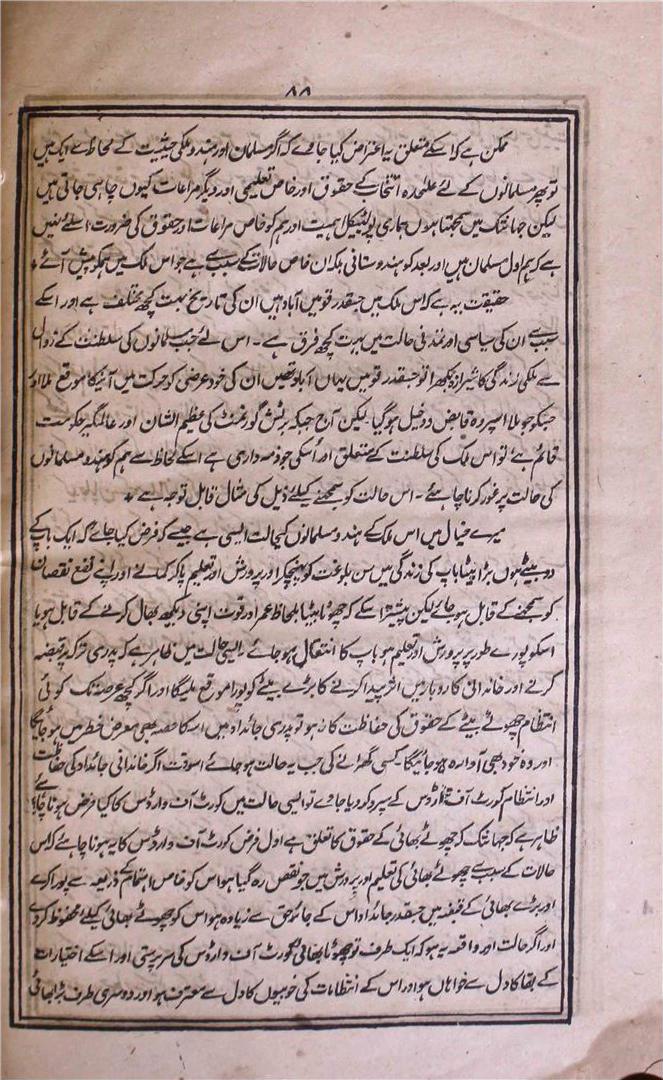 ۸۸
ممکن ہے کہ اسکے متعلق یہ اعتراض کیا جاوے کہ اگر مسلمان اور ہندو ملکی حیثیت کے لحاظ سے ایک ہیں
تو پھر مسلمانوں کے لئے علٰحدہ انتخاب کے حقوق اور خاص تعلیمی اور دیگر مراعات کیوں چاہی جاتی ہیں
لیکن جہانتک میں سمجھتا ہوں ہماری پولیٹیکل اہمیت اور ہم کو خاص مراعات اور حقوق کی ضرورت اسلئے نہیں
ہے کہ ہم اول مسلمان ہیں اور بعد کو ہندوستانی بلکہ ان خاص حالات کے سبب سے ہے جو اس ملک میں ہمکو پیش آئے ٭
حقیقت یہ ہے کہ اس ملک میں جسقدر قومیں آباد ہیں ان کی تاریخ بہت کچھ مختلف ہے اور اسکے
سبب سے ان کی سیاسی اور تمدنی حالت میں بہت کچھ فرق ہے ۔ اس لئے جب مسلمانوں کی سلطنت کے زوال
سے ملکی زندگی کا شیرازہ بکھرا تو جسقدر قومیں یہاں آباد تھیں ان کی خود غرضی کو حرکت میں آنیکا موقع ملا اور
جسکو جو ملا اسپر وہ قابض و دخیل ہوگیا لیکن آج جبکہ برٹش گورنمنٹ کی عظیم الشان اور عالمگیر حکومت
قائم ہے تو اس ملک کی سلطنت کے متعلق اور اُسکی جو ذمہ داری ہے اسکے لحاظ سے ہم کو ہندو مسلمانوں
کی حالت پر غور کرنا چاہئے ۔ اس حالت کو سمجھنے کیلئے ذیل کی مثال قابل توجہ ہے ٭
میرے خیال میں اس ملک کے ہندو مسلمانوں کیحالت ایسی ہے جیسے کہ فرض کیا جائے کہ ایک باپ کے
دو بیٹے ہوں بڑا بیٹا باپ کی زندگی میں سن بلوغت کو پہنچکر اور پرورش اور تعلیم پاکر کمانے اور اپنے نفع نقصان
کو سمجھنے کے قابل ہو جائے لیکن پیشتر اسکے کہ چھوٹا بیٹا بلحاظ عمر اور قوت اپنی دیکھ بھال کرنے کے قابل ہو یا
اسکو پورے طور پر پرورش اور تعلیم ہو باپ کا انتقال ہو جائے ۔ ایسی حالت میں ظاہر ہے کہ پدری ترکہ پر قبضہ
کرنے اور خاندانی کاروبار میں اثر پیدا کرنے کا بڑے بیٹے کو پورا موقع ملیگا اور اگر کچھ عرصہ تک کوئی
انتظام چھوٹے بیٹے کے حقوق کی حفاظت کا نہو تو پدری جائداد میں اسکا حصہ بھی معرض خطر میں ہو جائیگا
اور وہ خود بھی آوارہ ہو جائیگا کسی گھرانے کی جب یہ حالت ہو جائے اسوقت اگر خاندانی جائداد کی حفاظت
اور انتظام کورٹ آف وارڈس کے سپرد کر دیا جاوے تو ایسی حالت میں کورٹ آف وارڈس کا کیا فرض ہونا چاہئے؟
ظاہر ہے کہ جہانتک کہ چھوٹے بھائی کے حقوق کا تعلق ہے اول فرض کورٹ آف وارڈس کا یہ ہونا چاہئے کہ اس
حالات کے سبب سے چھوٹے بھائی کی تعلیم اور پرورش میں جو نقص رہ گیا ہو اس کو خاص اہتمام کے ذریعہ سے پورا کرے
اور بڑے بھائی کے قبضہ میں جسقدر جائداد اس کے جائز حق سے زیادہ ہو اس کو چھوٹے بھائی کیلئے محفوظ کردے
اور اگر حالت اور واقعہ یہ ہو کہ ایک طرف تو چھوٹا بھائی کورٹ آف وارڈس کی سرپرستی اور اسکے اختیارات
کے بقا کا دل سے خواہاں ہو اور اس کے انتظامات کی خوبیوں کا دل سے معترف ہو اور دوسری طرف بڑا بھائی